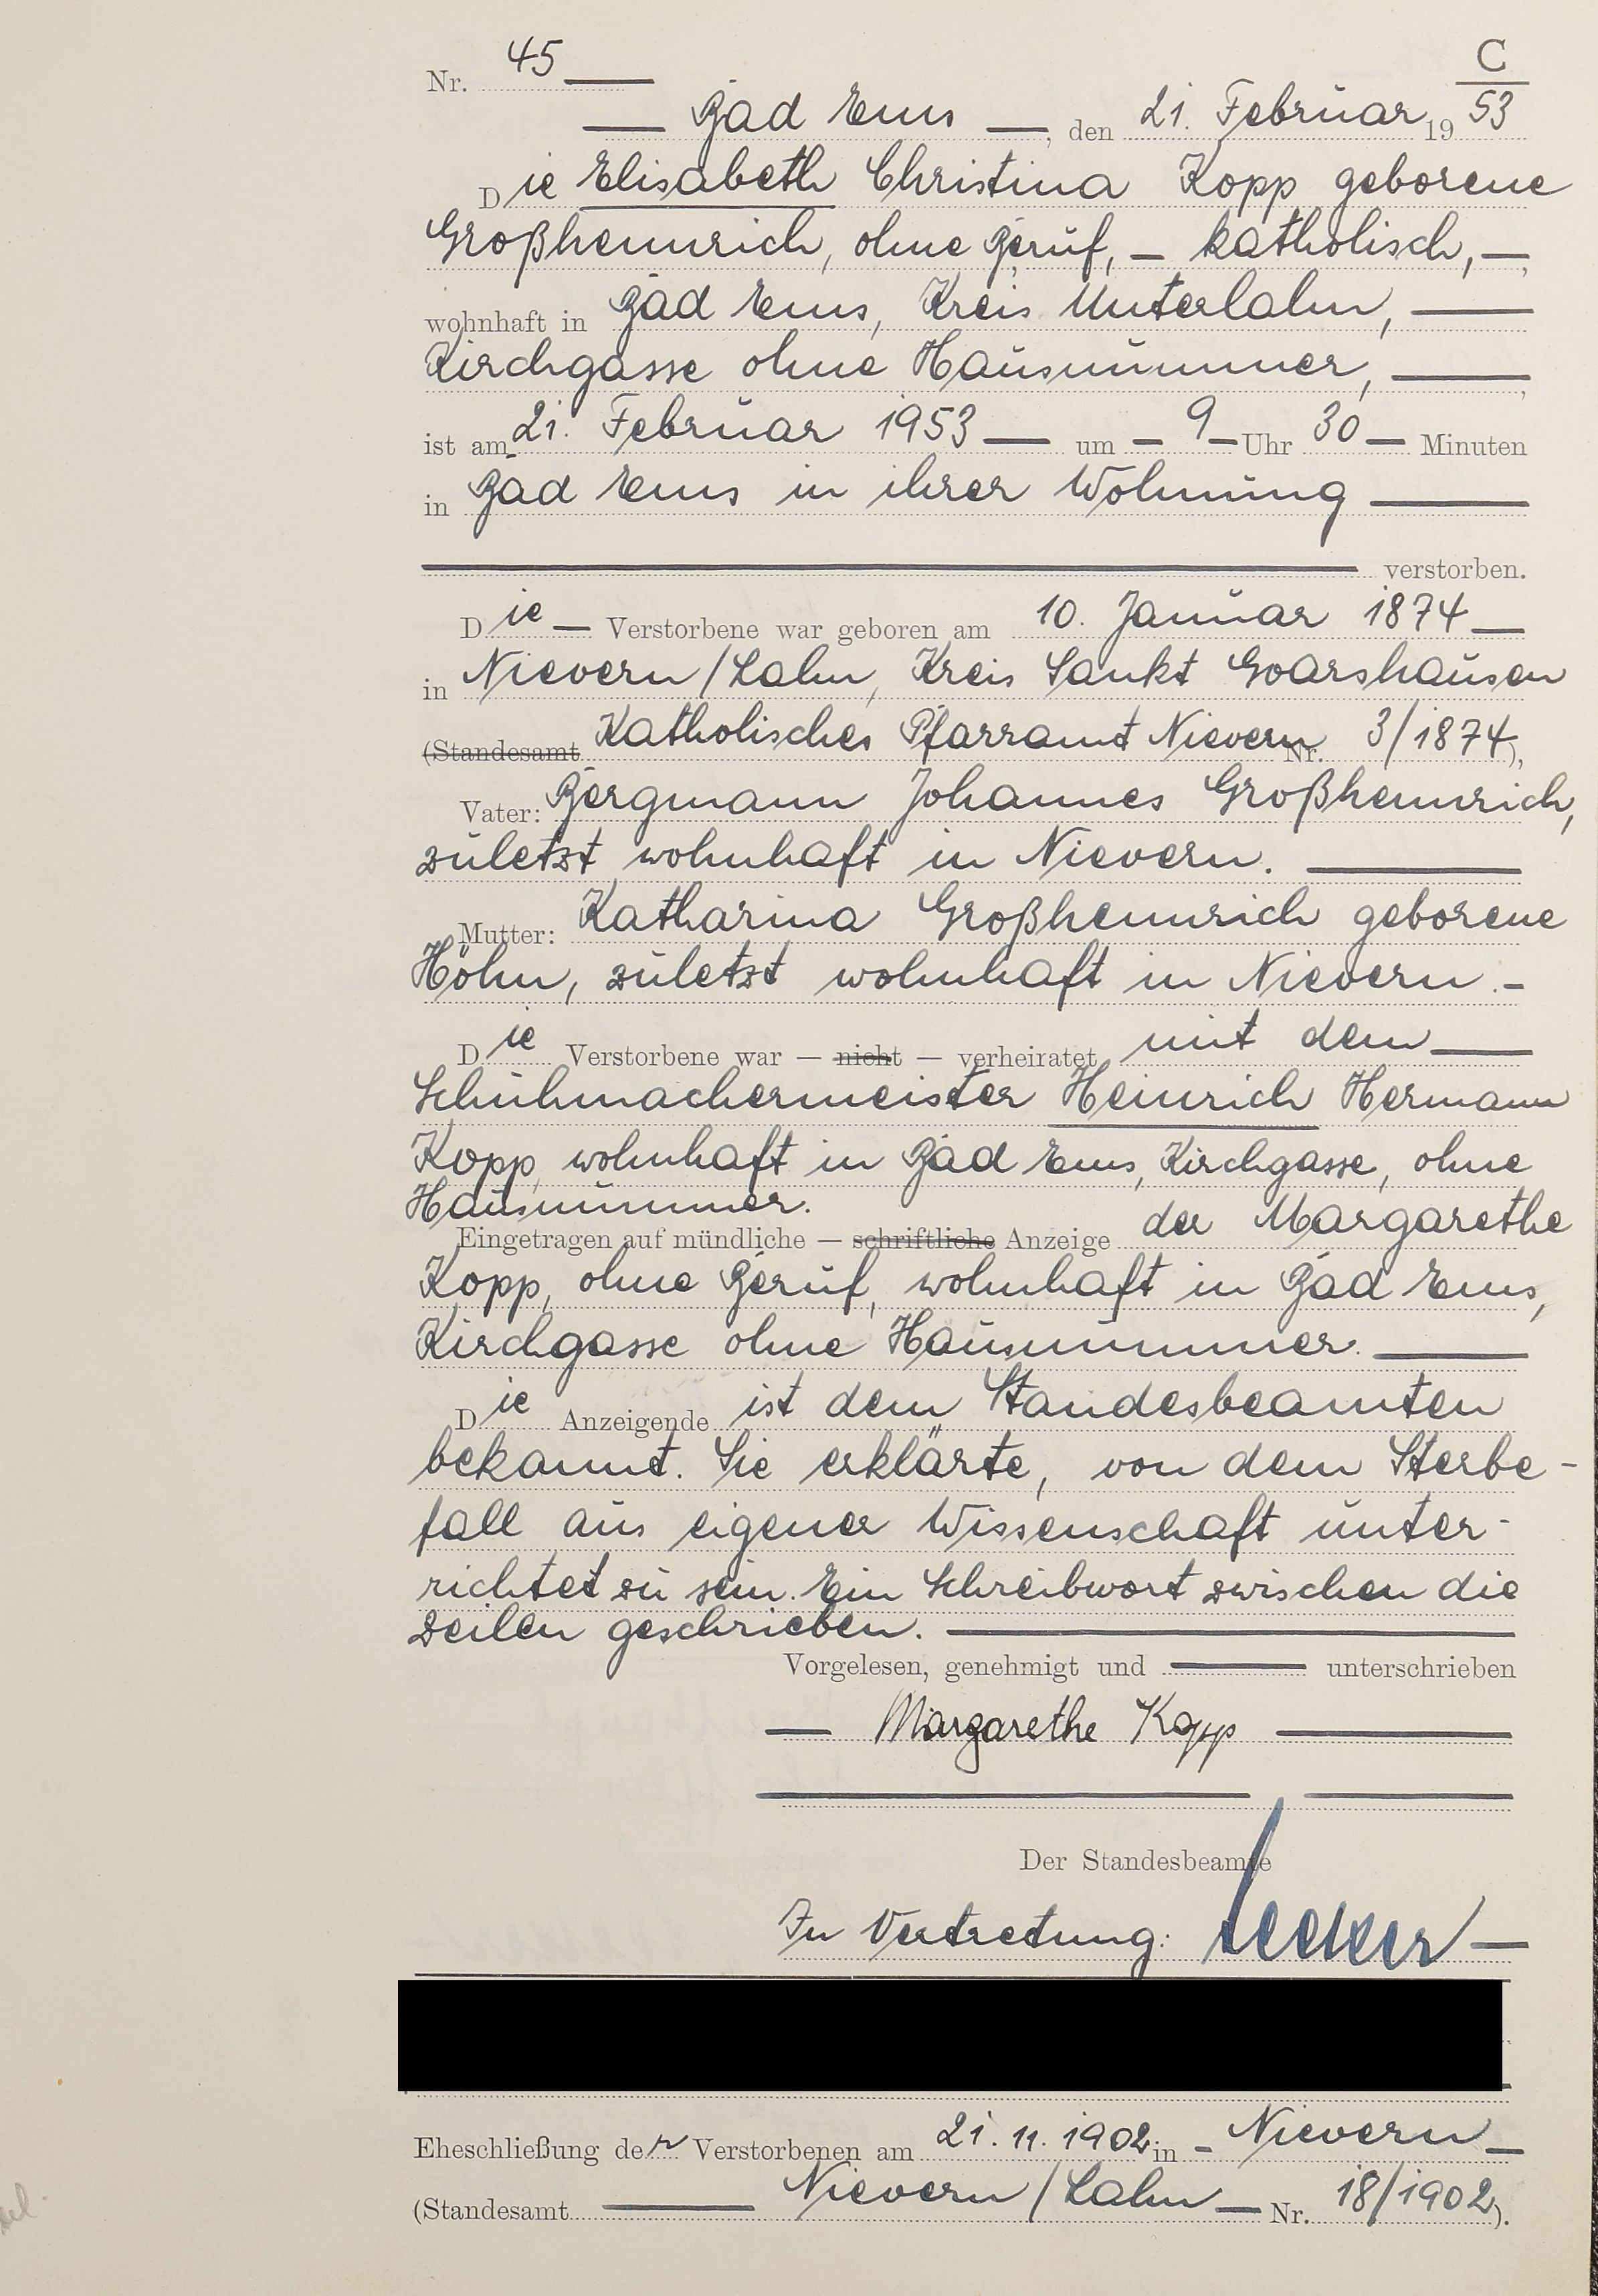 Nr. 45
C
Bad Ems, den 21. Februar 1953
Die Elisabeth Christina Kopp geborene
Großhennrich, ohne Beruf, - katholisch, -,
wohnhaft in Bad Ems, Kreis Unterlahn,
Kirchgasse ohne Hausnummer,
ist am 21. Februar 1953 um - 9 - Uhr 30 - Minuten
in Bad Ems in ihrer Wohnung
verstorben.
Die Verstorbene war geboren am 10. Januar 1874
in Nievern/Lahn, Kreis Sankt Goarshausen
(Standesamt Katholisches Pfarramt Nievern Nr. 3/1874),
Vater: Bergmann Johannes Großhennrich,
zuletzt wohnhaft in Nievern.
Mutter: Katharina Großhennrich geborene
Höhn, zuletzt wohnhaft in Nievern. -
Die Verstorbene war — nicht — verheiratet mit dem
Schuhmachermeister Heinrich Hermann
Kopp, wohnhaft in Bad Ems, Kirchgasse, ohne
Hausnummer.
Eingetragen auf mündliche — schriftliche Anzeige der Margarethe
Kopp, ohne Beruf, wohnhaft in Bad Ems,
Kirchgasse ohne Hausnummer.
Die Anzeigende ist dem Standesbeamten
bekannt. Sie erklärte, von dem Sterbe-
fall aus eigener Wissenschaft unter-
richtet zu sein. Ein Schreibwort zwischen die
Zeilen geschrieben.
Vorgelesen, genehmigt und unterschrieben
Margarethe Kopp
Der Standesbeamte
In Vertretung:
Eheschließung der Verstorbenen am 21.11.1902 in - Nievern -
(Standesamt Nievern/Lahn - Nr. 18/1902).